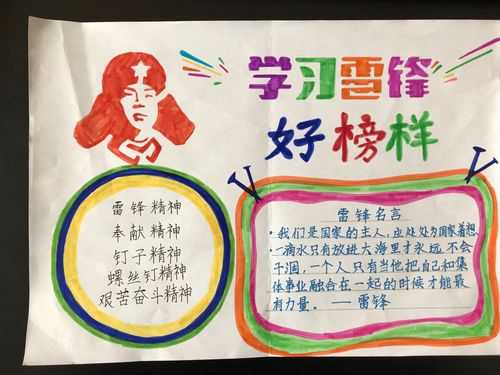 学习雷锋
好榜样
雷锋精神
奉献精神
钉子精神
螺丝钉精神
艰苦奋斗精神
雷锋名言
·我们是国家的主人，应处处为国家着想。
·一滴水只有放进大海里才永远不会
干涸，一个人只有当他把自己和集
体事业融合在一起的时候才能最
有力量。——雷锋